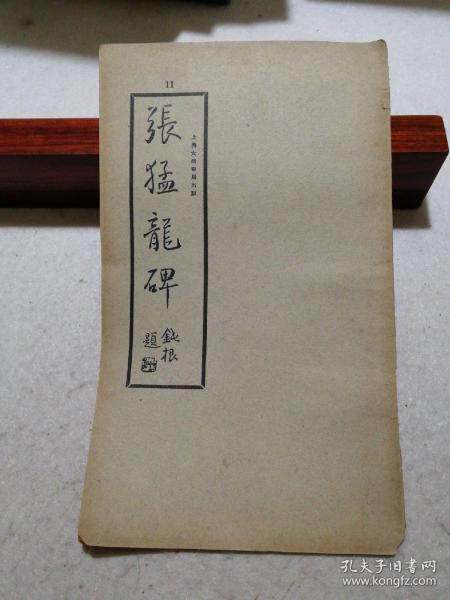 11
張猛龍碑
鈍根
題
上海大眾書局印
孔夫子旧书网
www.kongfz.com